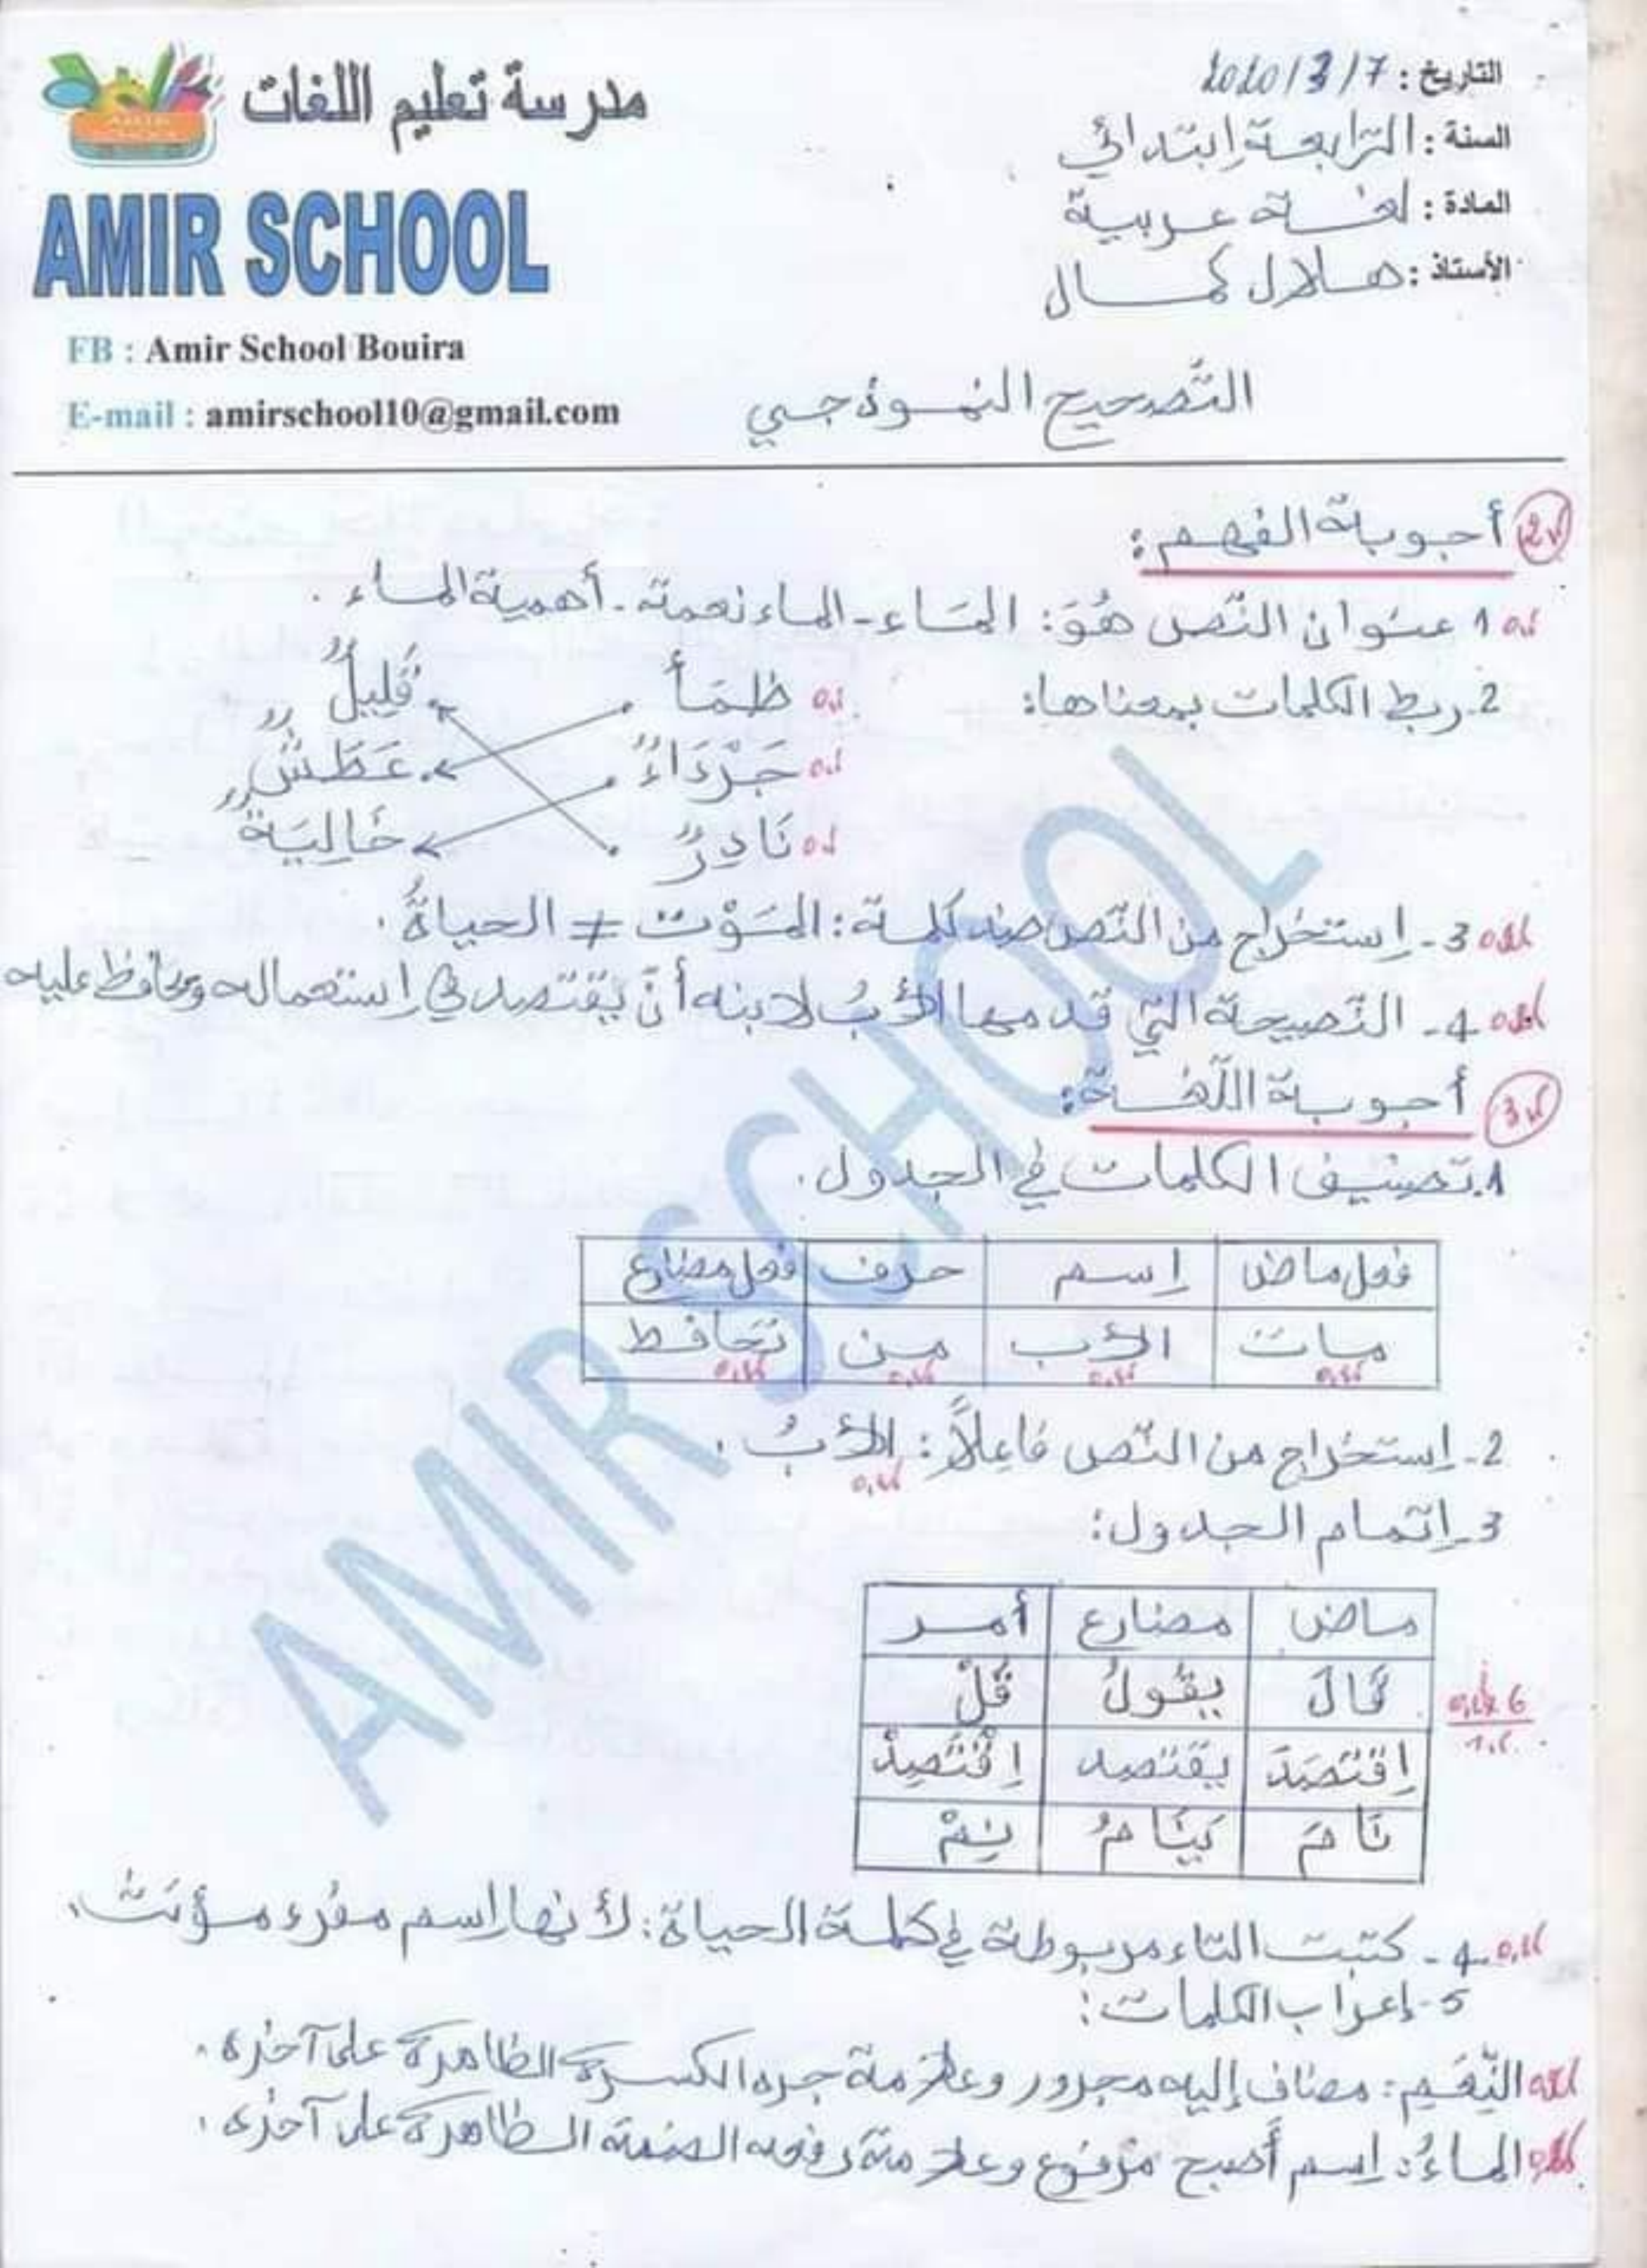 مدرسة تعليم اللغات
AMIR SCHOOL
FB : Amir School Bouira
E-mail : amirschool10@gmail.com
التاريخ : 2020/3/7
السنة : الرّابعة إبتدائي
المادة : لغة عربية
الأستاذ : هلال كمال
التّصحيح النموذجي
أجوبة الفهم :
1 عنوان النّص هُوَ: المَاء - الماء نعمة - أهمية الماء .
2. ربط الكلمات بمعناها:
ظَمَأ قَلِيلٌ
جَرْدَاءُ عَطَشٌ
نَادِرٌ خَالِيَةٌ
3 - إستخراج من النّص ضد كلمة : المَوْت ≠ الحياةُ .
4 - النّصيحة التي قدمها الأبُ لابنه أنّ يقتصد في إستعماله ويحافظ عليه
أجوبة اللّغة :
1. تصنيف الكلمات في الجدول .
فعل ماض اسم حرف فعل مضارع
مات الأب من تحافظ
2 - إستخراج من النّص فاعِلاً : الأبُ .
3 - إتمام الجدول :
ماض مضارع أمر
قَالَ يقُولُ قُلْ
اِقْتَصَدَ يقتصد اِقْتَصِدْ
نَامَ يَنَامُ نِمْ
4 - كتبت التاء مربوطة في كلمة الحياة : لأنها إسم مفرد مؤنث .
5 - إعراب الكلمات :
النِّعَمِ : مضاف إليه مجرور وعلامة جره الكسرة الظاهرة على آخره .
الماءُ : إسم أصبح مرفوع وعلامة رفعه الضمة الظاهرة على آخره .
AMIR SCHOOL